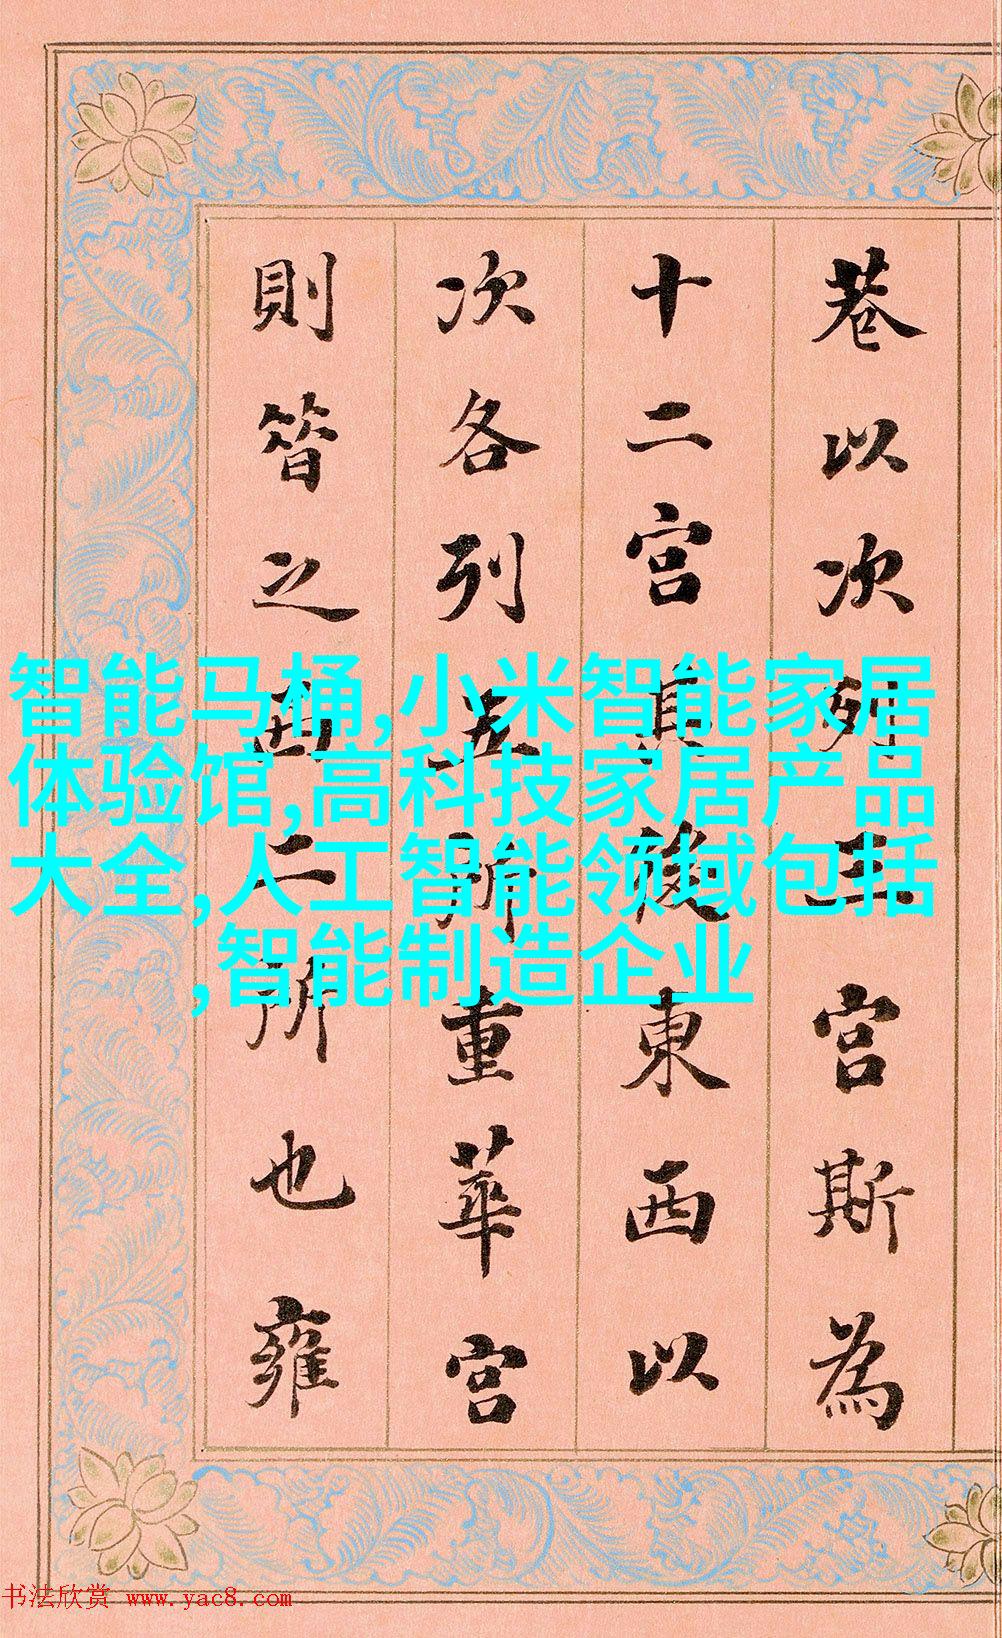 巷以次列三宮斯為
十二宮其後東西以
次各列五所重華宮
則昔之西二所也雍
智能马桶,小米智能家居
体验馆,高科技家居产品
大全,人工智能领域包括
,智能制造企业
书法欣赏 www.yac8.com